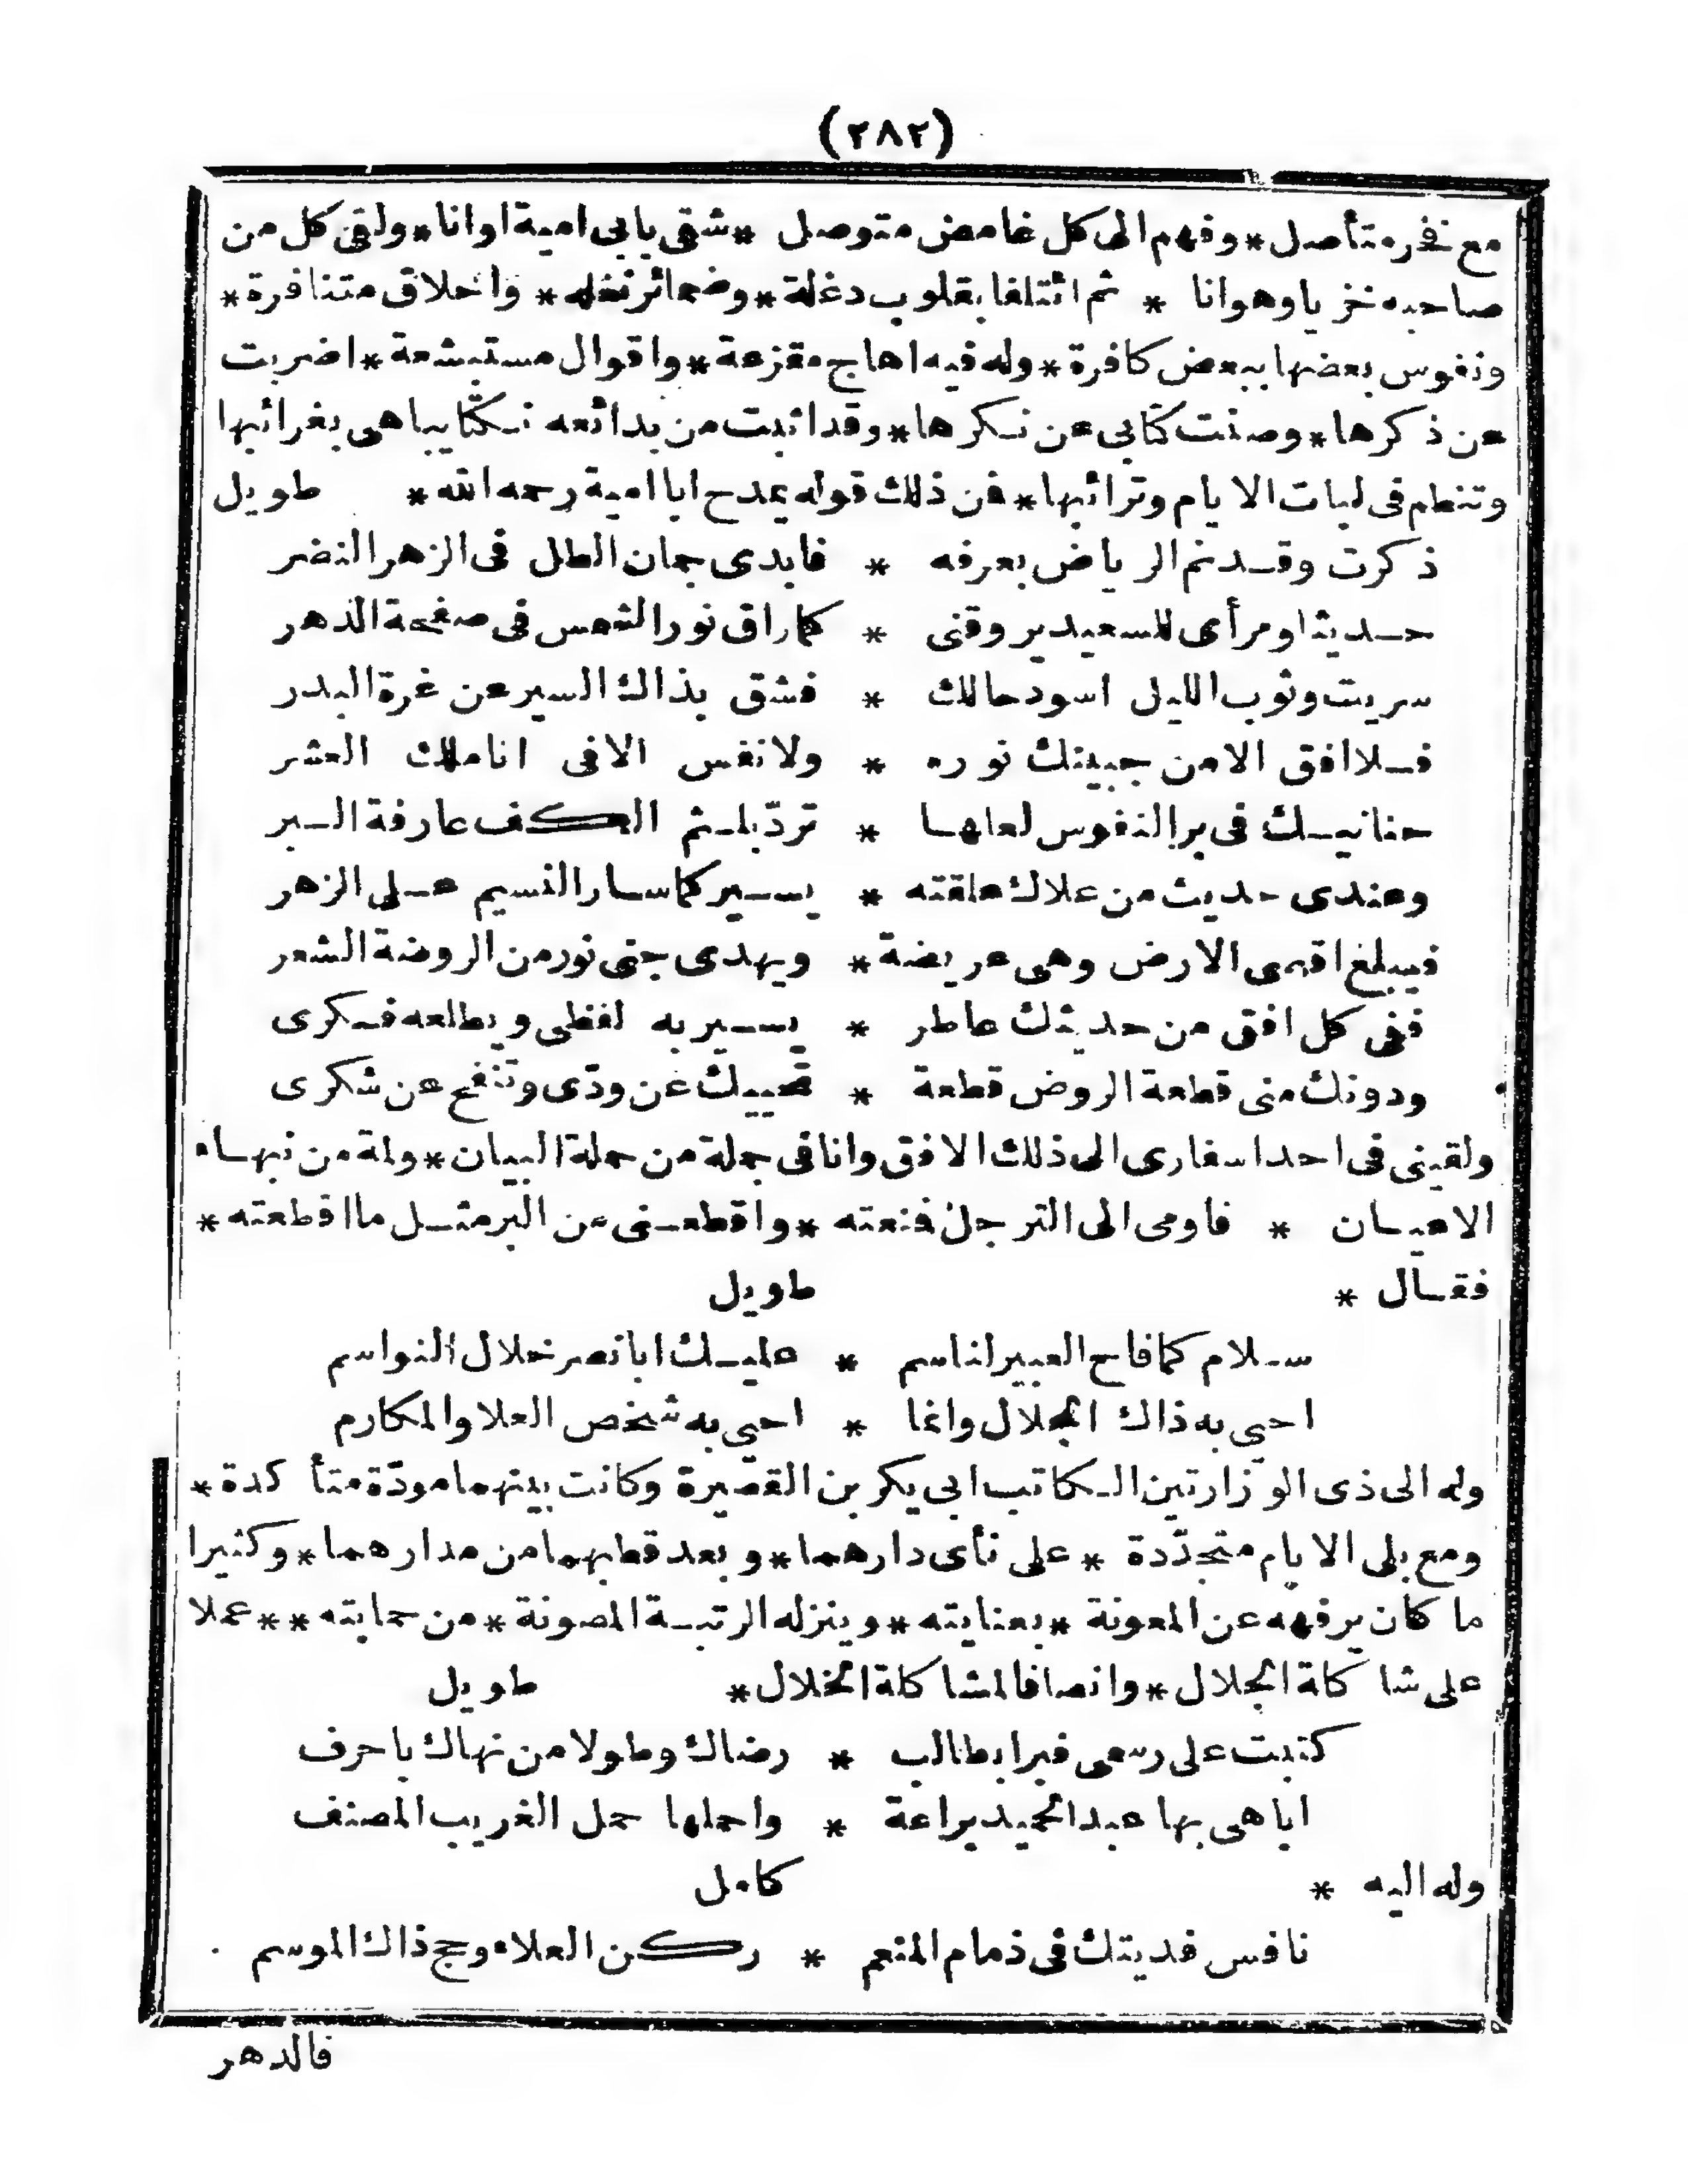 (٢٨٢)
مع فخر متأصل * وفهم الى كل غامض متوصل * شقى بابى امية اوانا * ولقى كل من
صاحبه خزيا وهوانا * ثم ائتلفا بقلوب دغلة * وضمائر نغله * واخلاق متنافرة *
ونفوس بعضها ببعض كافرة * وله فيه اهاج مقزعة * واقوال مستبشعة * اضربت
عن ذكرها * وصنت كتابى عن نكرها * وقد اثبت من بدائعه نكتا يباهى بغرائبها
وتنظم فى لبات الايام وترائبها * فن ذلك قوله يمدح ابا امية رحمه الله * طويل
ذكرت وقد نم الرياض بعرفه * فابدى جمان الطل فى الزهر النضر
حديثا ومرأى للسعيد يروقنى * كما راق نور الشمس فى صفحة الدهر
سريت وثوب الليل اسود حالك * فشق بذاك السير عن غرة البدر
فلا افق الا من جبينك نوره * ولا نفس الا فى اناملك العشر
حنانيك فى بر النفوس لعلها * تردّ بلثم الكف عارفة البر
وعندى حديث من علاك علقته * يسير كما سار النسيم على الزهر
فيبلغ اقصى الارض وهى عريضة * ويهدى جنى نور من الروضة الشعر
ففى كل افق من حديثك عاطر * يسير به لفظى ويطلعه فكرى
ودونك منى قطعة الروض قطعة * تحييك عن ودّى وتنفح عن شكرى
ولقينى فى احد اسفارى الى ذلك الافق وانا فى جملة من حملة البيان * ولمة من نبهاء
الاعيان * فاومى الى الترجل فنعته * واقطعنى من البر مثل ما اقطعته *
فقال * طويل
سلام كما فاح العبير لناسم * عليك ابا نصر خلال النواسم
احيي به ذاك الجلال وانما * احيي به شخص العلا والمكارم
وله الى ذى الوزارتين الكاتب ابى بكر بن القصيرة وكانت بينهما مودّة متأكدة *
ومع بلى الايام متجدّدة * على نأى دارهما * وبعد قطبهما من مدارهما * وكثيرا
ما كان يرفهه عن المعونة * بعنايته * وينزله الرتبة المصونة * من حمايته * * عملا
على شاكلة الجلال * وانصافا لمشاكلة الخلال * طويل
كتبت على رسمى فبرا بطالب * رضاك وطولا من نهاك باحرف
اباهى بها عبد الحميد براعة * واحملها حمل الغريب المصنف
وله اليه * كامل
نافس فديتك فى ذمام المنعم * ركن العلاء وحج ذاك الموسم
فالدهر